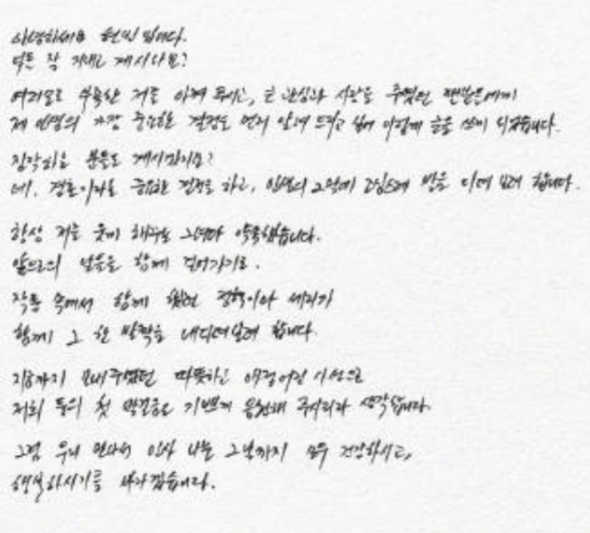 안녕하세요 현빈 입니다.
다들 잘 지내고 계시나요?
여러모로 부족한 저를 아껴 주시고, 큰 관심과 사랑을 주셨던 팬분들에게
제 인생의 가장 중요한 결정을 먼저 알려 드리고 싶어 이렇게 글을 쓰게 되었습니다.
짐작하고 분들도 계시겠지요?
네. 결혼이라는 중요한 결정을 하고, 인생의 2막에 조심스레 발을 디뎌 보려 합니다.
항상 저를 웃게 해주는 그녀와 약속했습니다.
앞으로의 날들을 함께 걸어가기로.
작품 속에서 함께 했던 정혁이와 세리가
함께 그 한 발짝을 내디뎌보려 합니다.
지금까지 보내주셨던 따뜻하고 애정어린 시선으로
저희 둘의 첫 발걸음도 기쁘게 응원해 주시리라 생각합니다.
그럼 우리 만나서 인사 나눌 그날까지 모두 건강하시고,
행복하시기를 바라겠습니다.